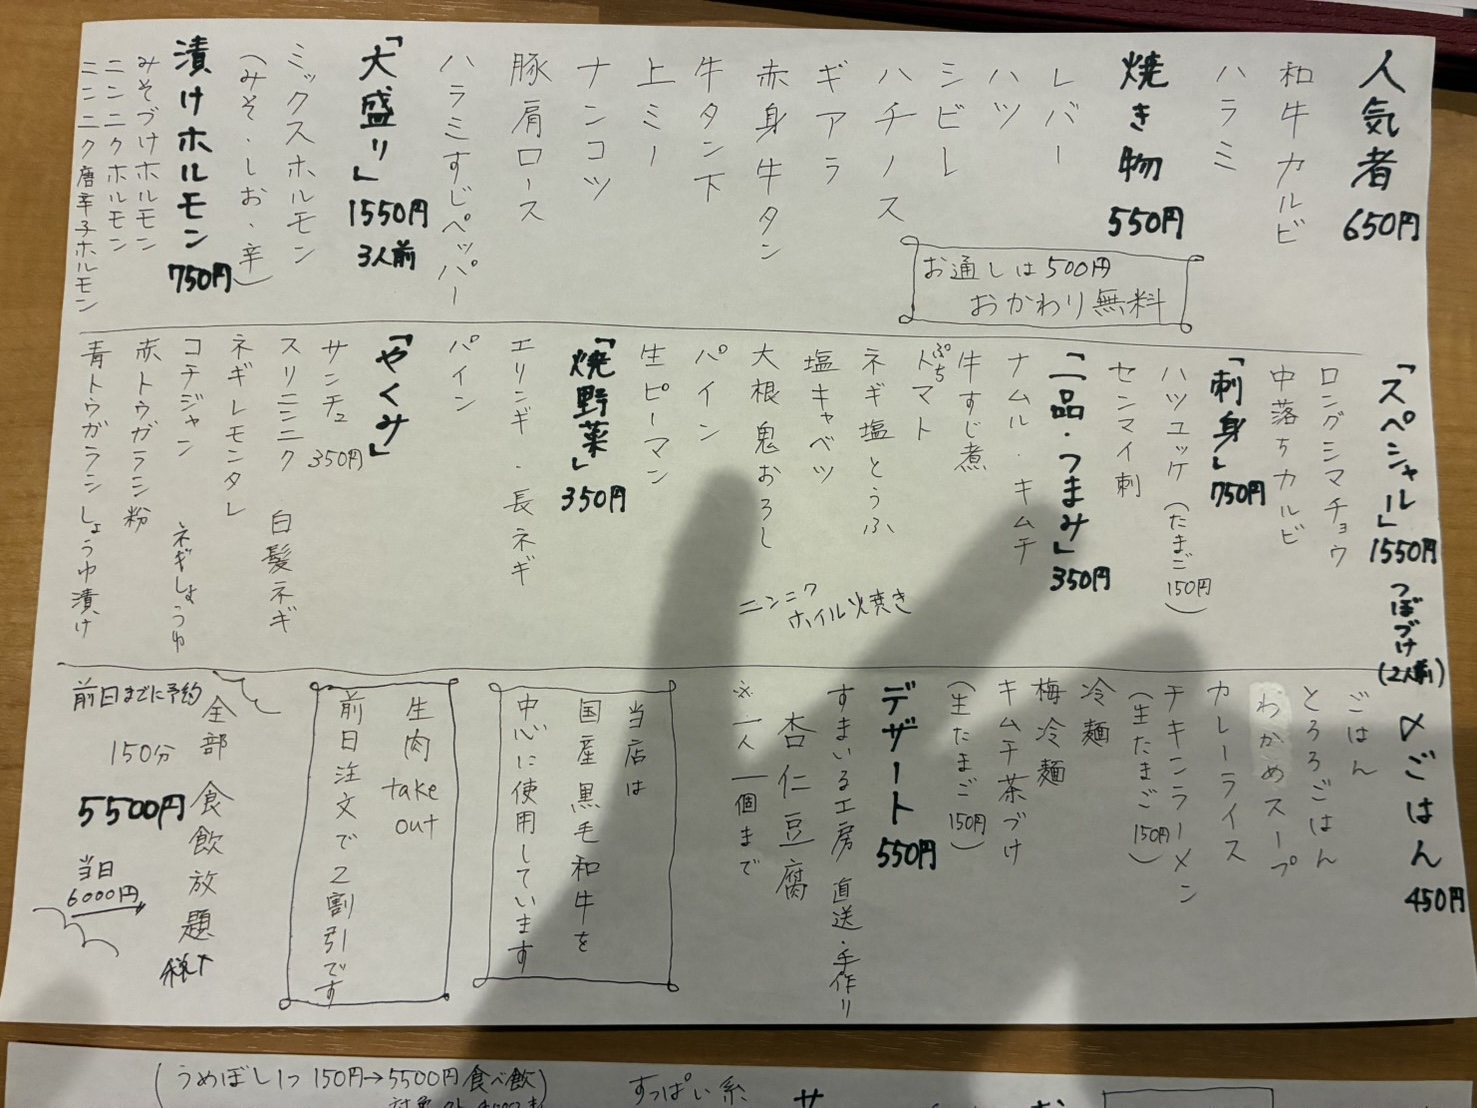 人気者
650円
和牛カルビ
ハラミ
焼き物
550円
レバー
ハツ
シビレ
ハチノス
ギアラ
赤身牛タン
牛タン下
上ミノ
ナンコツ
豚肩ロース
ハラミすじペッパー
「大盛り」
1550円
3人前
ミックスホルモン
(みそ・しお・辛)
漬けホルモン
750円
みそづけホルモン
ニンニクホルモン
ニンニク唐辛子ホルモン
お通しは500円
おかわり無料
「スペシャル」
1550円
つぼづけ
(2人前)
ロングシマチョウ
中落ちカルビ
「刺身」
750円
ハツユッケ(たまご150円)
センマイ刺
「一品・つまみ」
350円
ナムル・キムチ
牛すじ煮
ぷちトマト
ネギ塩とうふ
塩キャベツ
大根鬼おろし
パイン
生ピーマン
ニンニク
ホイル焼き
「焼野菜」
350円
エリンギ・長ネギ
パイン
「やくみ」
サンチュ 350円
スリニンニク 白髪ネギ
ネギレモンタレ
コチジャン ネギしょうゆ
赤トウガラシ粉
青トウガラシしょうゆ漬け
〆ごはん
450円
ごはん
とろろごはん
わかめスープ
カレーライス
チキンラーメン
(生たまご150円)
冷麺
梅冷麺
キムチ茶づけ
(生たまご150円)
デザート
550円
すまいる工房 直送・手作り
杏仁豆腐
※一人一個まで
当店は
国産黒毛和牛を
中心に使用しています
生肉 take out
前日注文で2割引です
全部食飲放題
税込
前日までに予約
150分
5500円
当日
6000円
(うめぼし1つ150円→5500円食べ飲)
すっぱい系